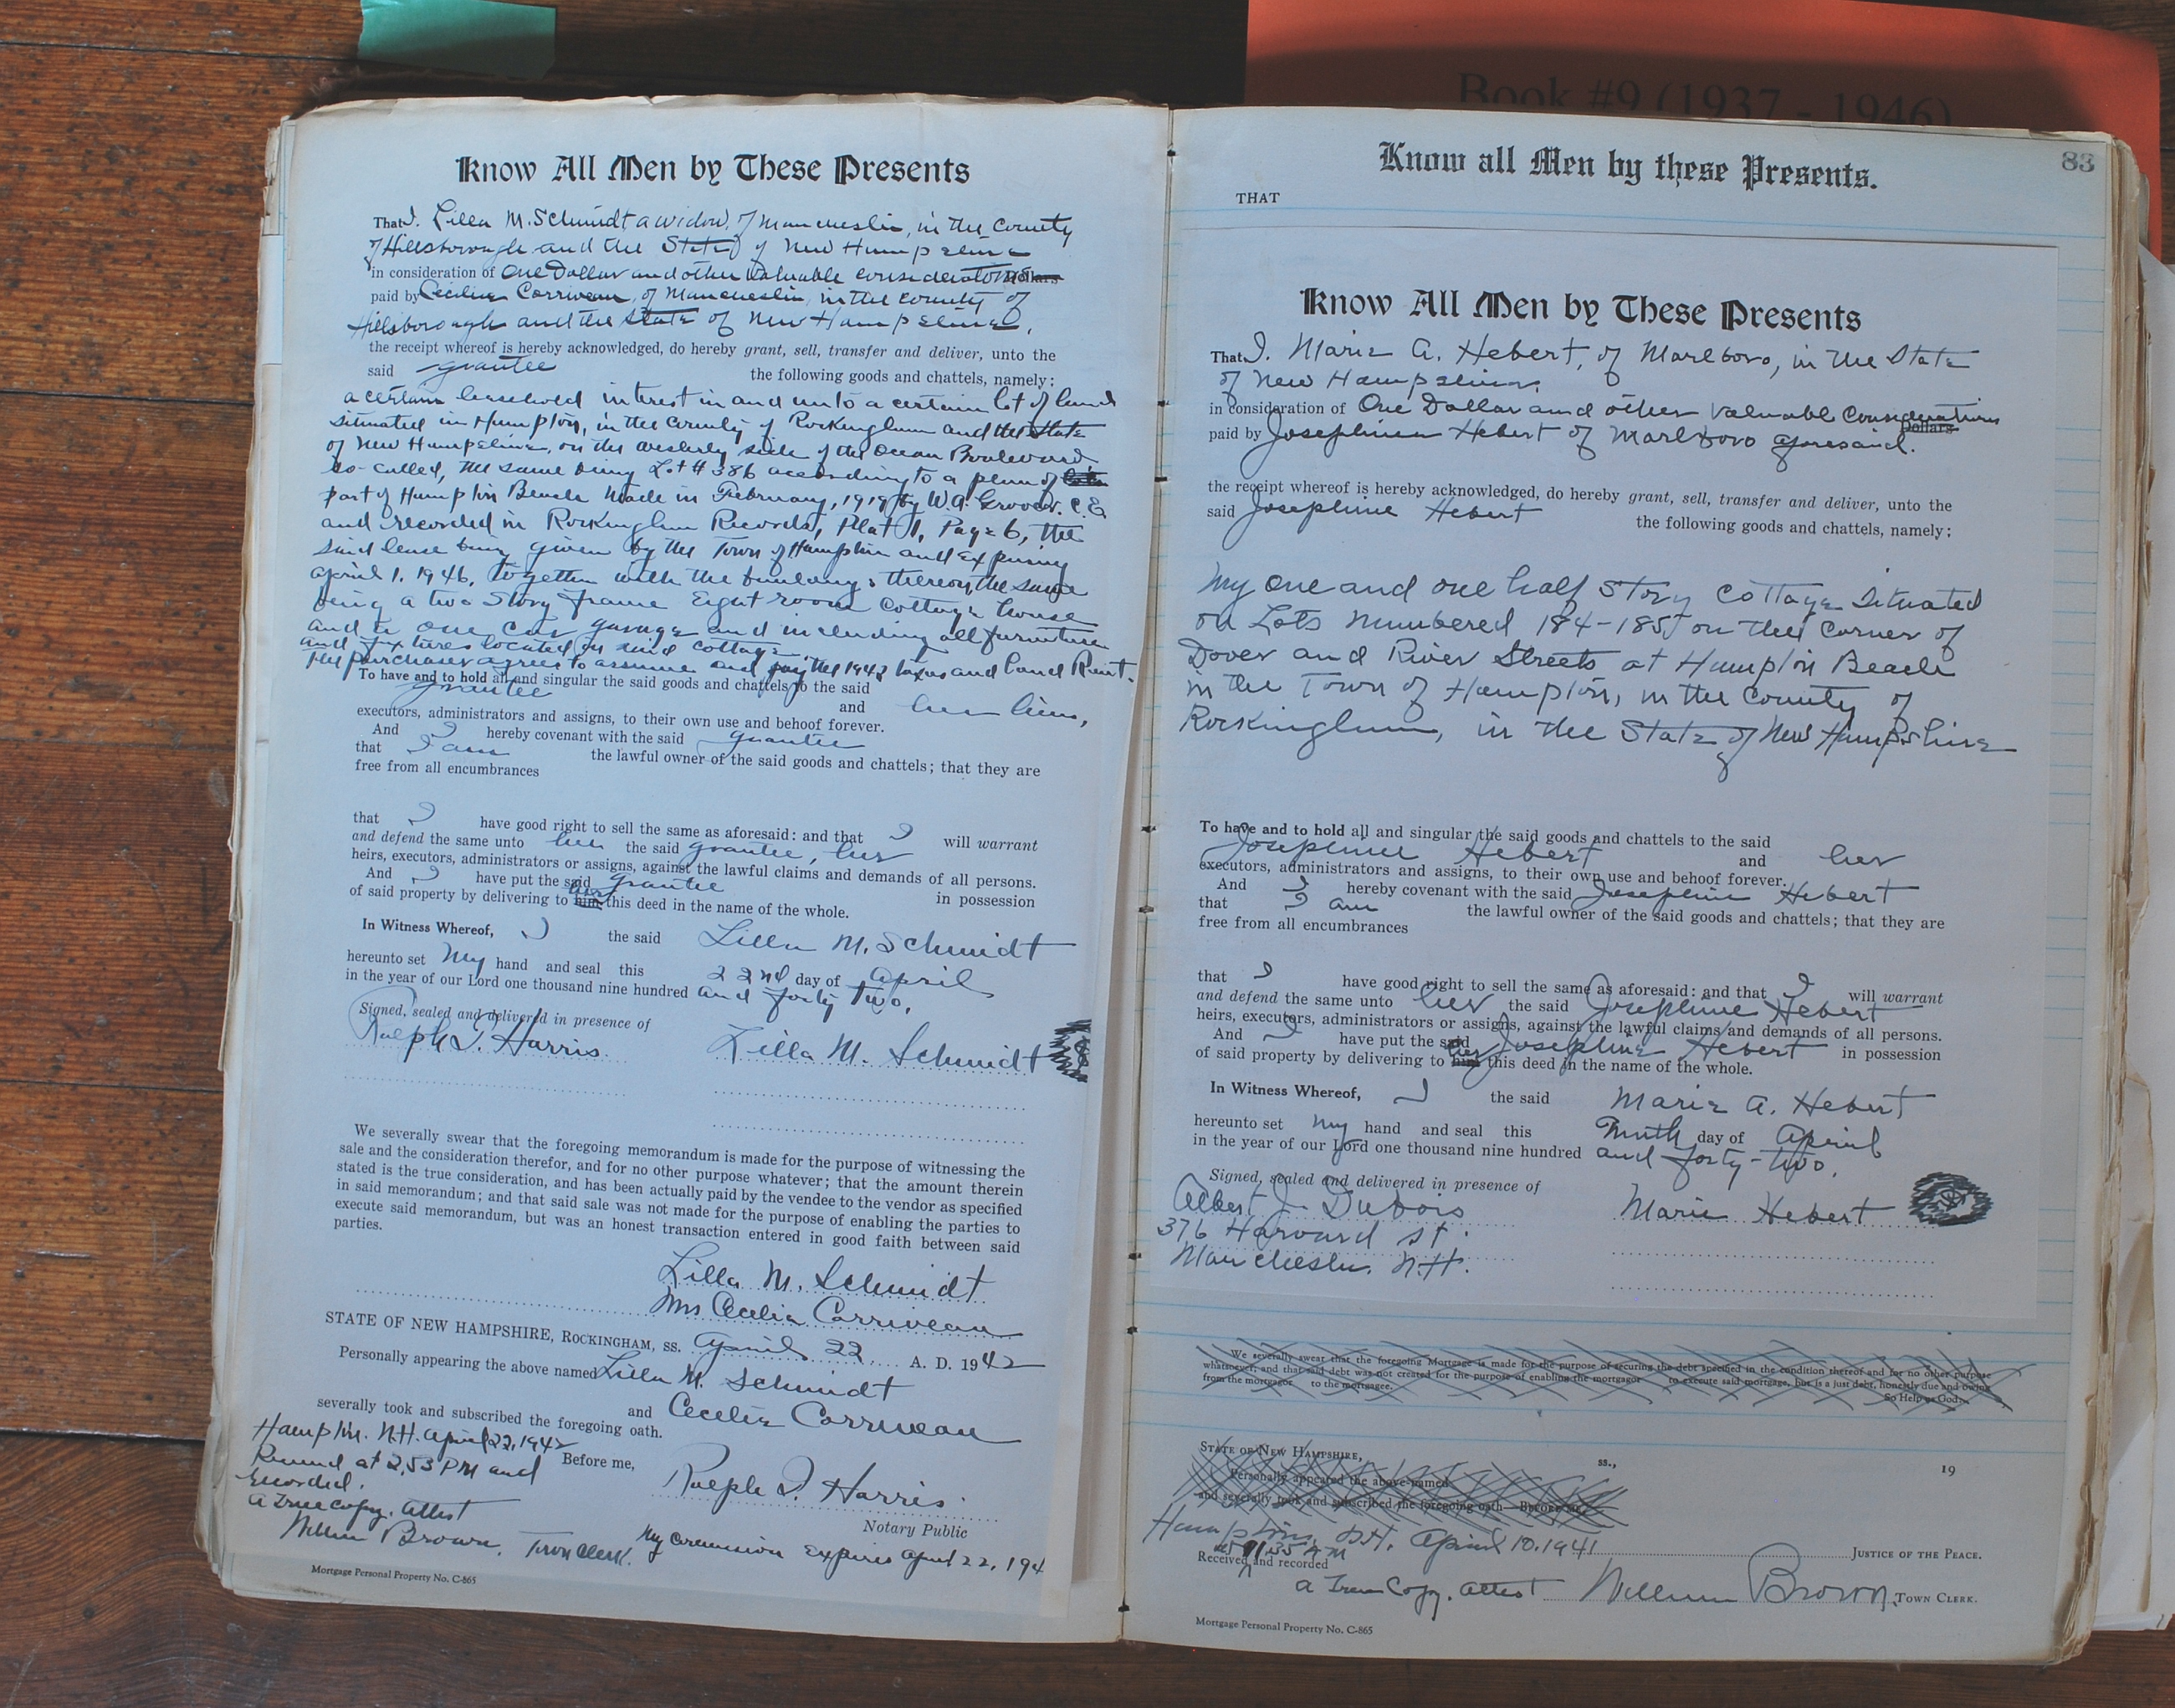 Book #9 (1937 - 1946)
Know All Men by These Presents
That I, Lilla M. Schmidt a widow, of Manchester, in the County
of Hillsborough and the State of New Hampshire
in consideration of One Dollar and other valuable considerations Dollars
paid by Cecilia Corriveau, of Manchester, in the County of
Hillsborough and the State of New Hampshire,
the receipt whereof is hereby acknowledged, do hereby grant, sell, transfer and deliver, unto the
said grantee the following goods and chattels, namely;
a certain leasehold interest in and unto a certain lot of land
situated in Hampton, in the County of Rockingham and the State
of New Hampshire, on the westerly side of the Ocean Boulevard
so-called, the same being Lot # 386 according to a plan of
part of Hampton Beach made in February, 1919 by W.A. Grover. C.E.
and recorded in Rockingham Records, Plat 1, Page 6, the
said lease being given by the Town of Hampton and expiring
April 1, 1946, together with the buildings thereon, the same
being a two story frame Eight room cottage house
and a one car garage and including all furniture
and fixtures located in said cottage.
The purchaser agrees to assume and pay the 1942 taxes and land Rent.
To have and to hold all and singular the said goods and chattels to the said
grantee and her heirs,
executors, administrators and assigns, to their own use and behoof forever.
And I hereby covenant with the said grantee
that I am the lawful owner of the said goods and chattels; that they are
free from all encumbrances
that I have good right to sell the same as aforesaid: and that I will warrant
and defend the same unto her the said grantee, her
heirs, executors, administrators or assigns, against the lawful claims and demands of all persons.
And I have put the said grantee in possession
of said property by delivering to him her this deed in the name of the whole.
In Witness Whereof, I the said Lilla M. Schmidt
hereunto set my hand and seal this 22nd day of April
in the year of our Lord one thousand nine hundred and forty two.
Signed, sealed and delivered in presence of
Ralph G. Harris. Lilla M. Schmidt
We severally swear that the foregoing memorandum is made for the purpose of witnessing the
sale and the consideration therefor, and for no other purpose whatever; that the amount therein
stated is the true consideration, and has been actually paid by the vendee to the vendor as specified
in said memorandum; and that said sale was not made for the purpose of enabling the parties to
execute said memorandum, but was an honest transaction entered in good faith between said
parties.
Lilla M. Schmidt
Mrs Cecelia Corriveau
STATE OF NEW HAMPSHIRE, ROCKINGHAM, ss. April 22 A. D. 1942
Personally appearing the above named Lilla M. Schmidt
and Cecelia Corriveau
severally took and subscribed the foregoing oath.
Hampton. N.H. April 22, 1942
Before me,
Received at 2.53 PM and
recorded.
Ralph G. Harris
a True Copy. attest
Notary Public
William Brown. Town Clerk. My commission expires April 22, 194
Mortgage Personal Property No. C-865
83
Know all Men by these Presents.
THAT
Know All Men by These Presents
That I, Marie A. Hebert, of Marlboro, in the State
of New Hampshire,
in consideration of One Dollar and other valuable considerations Dollars
paid by Josephine Hebert of Marlboro aforesaid.
the receipt whereof is hereby acknowledged, do hereby grant, sell, transfer and deliver, unto the
said Josephine Hebert the following goods and chattels, namely;
My one and one half story cottage situated
on Lots numbered 184-185 on the corner of
Dover and River Streets at Hampton Beach
in the Town of Hampton, in the County of
Rockingham, in the State of New Hampshire
To have and to hold all and singular the said goods and chattels to the said
Josephine Hebert and her
executors, administrators and assigns, to their own use and behoof forever.
And I hereby covenant with the said Josephine Hebert
that I am the lawful owner of the said goods and chattels; that they are
free from all encumbrances
that I have good right to sell the same as aforesaid: and that I will warrant
and defend the same unto her the said Josephine Hebert
heirs, executors, administrators or assigns, against the lawful claims and demands of all persons.
And I have put the said Josephine Hebert in possession
of said property by delivering to him her this deed in the name of the whole.
In Witness Whereof, I the said Marie A. Hebert
hereunto set my hand and seal this ninth day of April
in the year of our Lord one thousand nine hundred and forty-two.
Signed, sealed and delivered in presence of
Albert J. Dubois Marie Hebert
376 Harvard St.
Manchester. N.H.
We severally swear that the foregoing Mortgage is made for the purpose of securing the debt specified in the condition thereof and for no other purpose
whatsoever, and that said debt was not created for the purpose of enabling the mortgagor to execute said mortgage, but is a just debt, honestly due and owing
from the mortgagor to the mortgagee. So Help us God.
STATE OF NEW HAMPSHIRE, ss., 19
Personally appeared the above-named
and severally took and subscribed the foregoing oath—Before me,
Hampton, N.H. April 10, 1941 JUSTICE OF THE PEACE.
Received and recorded
a True Copy. attest William Brown, TOWN CLERK.
Mortgage Personal Property No. C-865